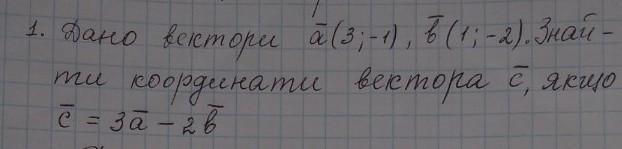 1. Дано вектори a̅(3;-1), b̅(1;-2). Знай-
ти координати вектора c̅, якщо
c̅ = 3a̅ - 2b̅